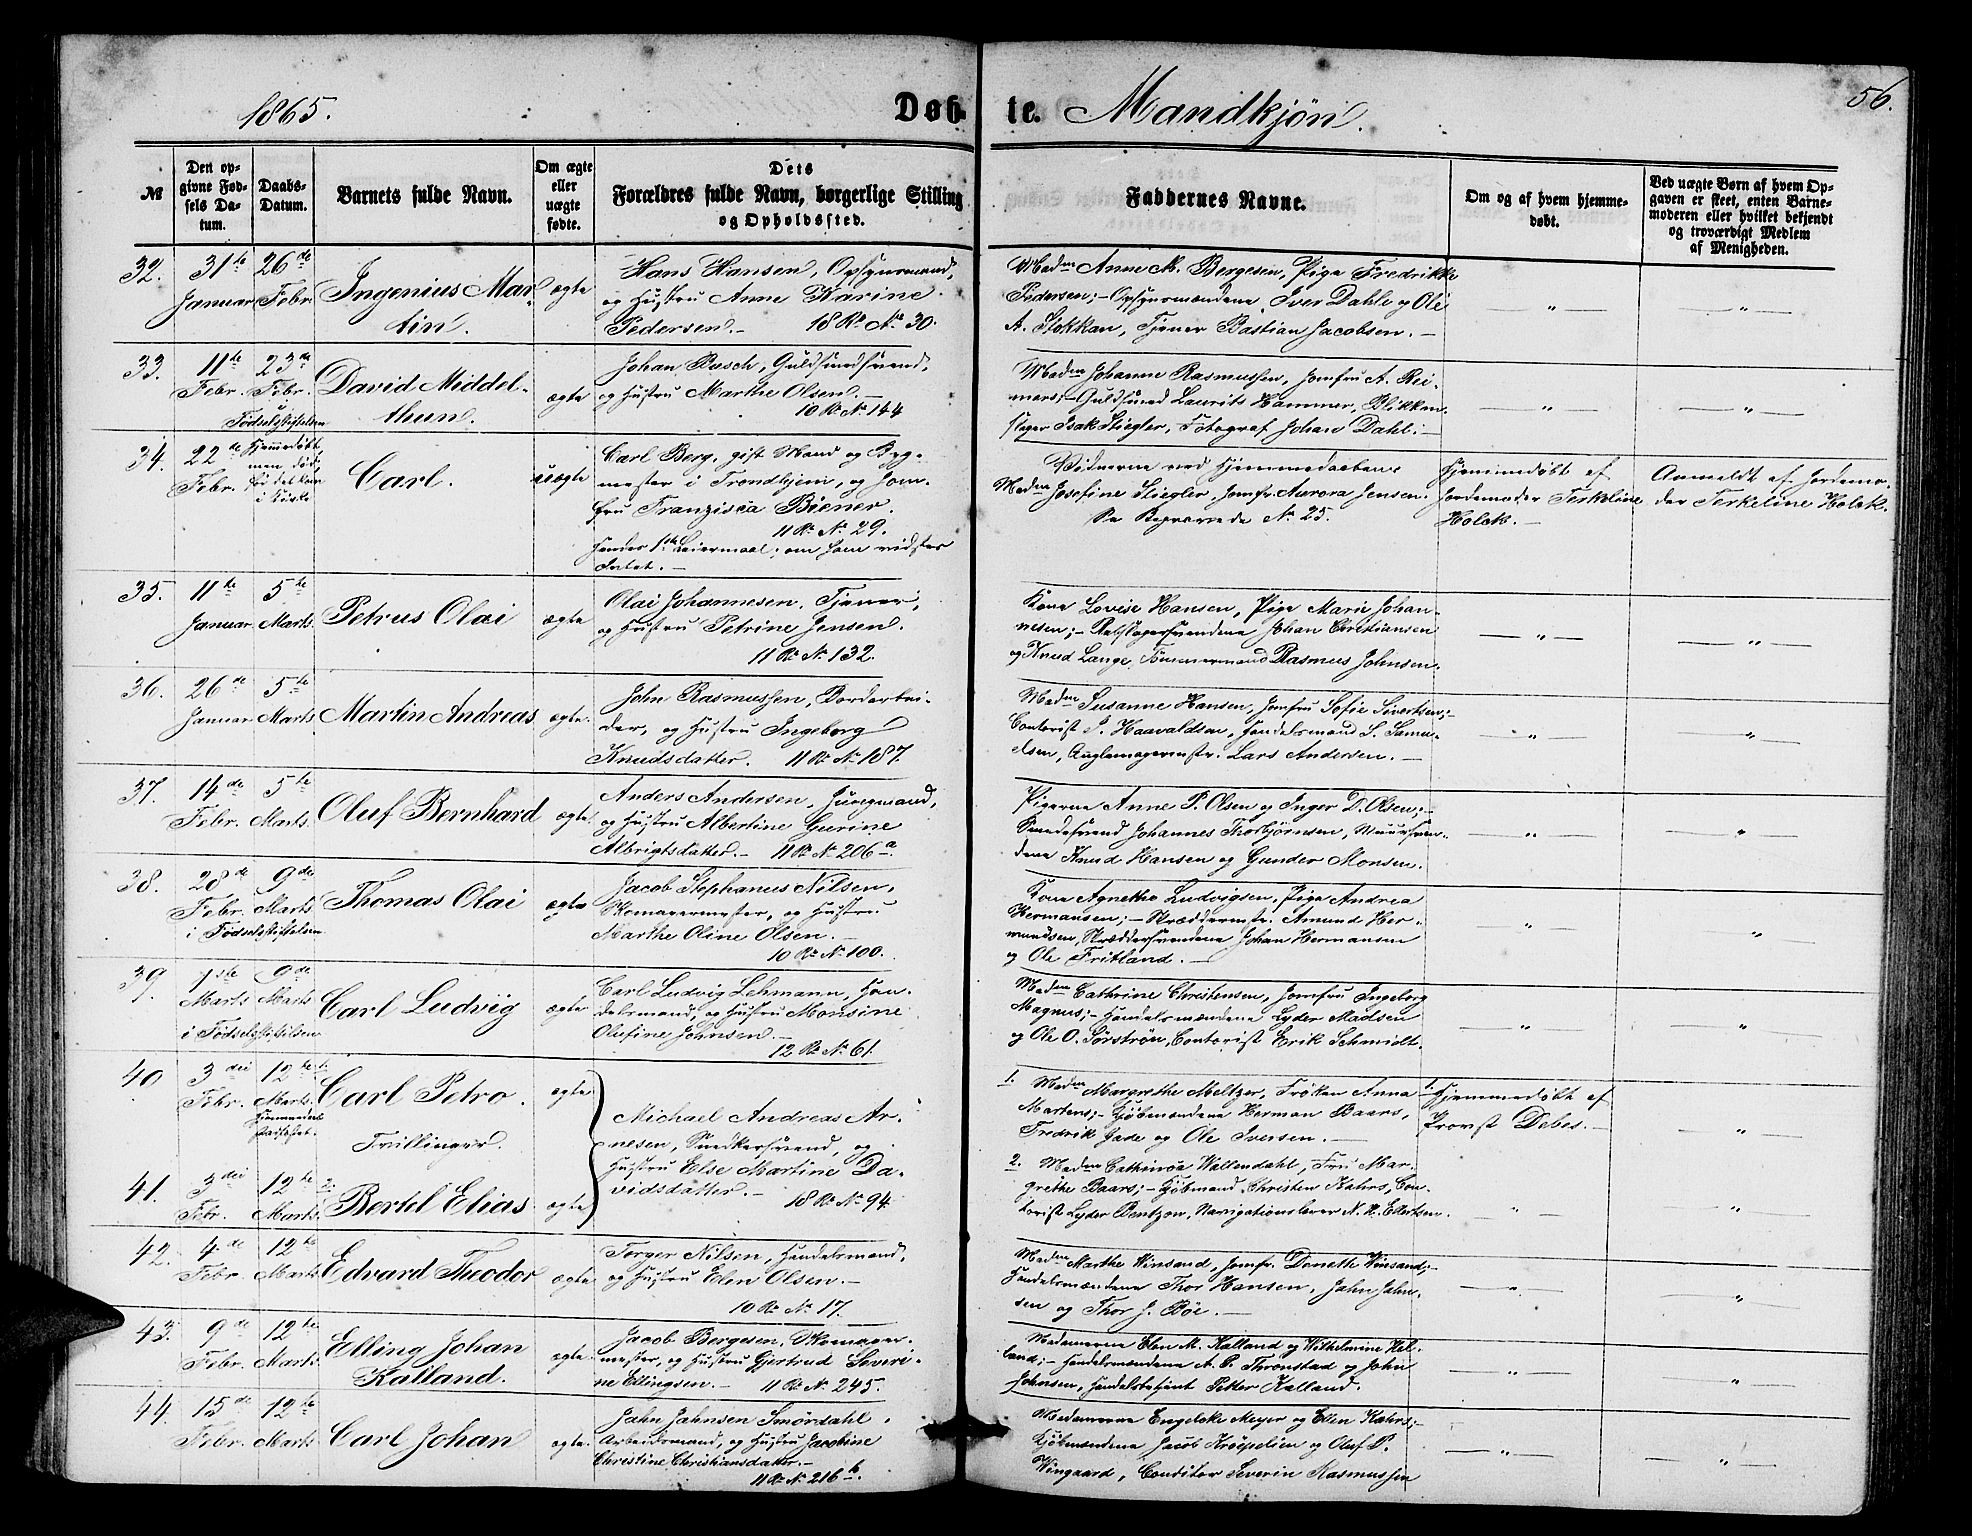 1865.
Døbte. Mandkjøn.
56.
№
Den opgivne Fødsels Datum.
Daabs-Datum.
Barnets fulde Navn.
Om ægte eller uægte fødte.
Dets Forældres fulde Navn, borgerlige Stilling og Opholdssted.
Faddernes Navne.
Om og af hvem hjemmedøbt.
Ved uægte Børn af hvem Opgaven er skeet, enten Barnemoderen eller hvilket bekjendt og troværdigt Medlem af Menigheden.
32. 31te Januar 26de Febr. Ingenius Martin. ægte
Hans Hansen, Opsynsmand,
og Hustru Anne Karine
Pedersen. — 18 R. No. 30.
Madm Anne M. Bergesen, Pige Fredrikke
Pedersen; — Opsynsmændene Iver Dahle og Ole
A. Stokkan, Tjener Bastian Jacobsen. —
33. 11te Febr. 23de Febr. i Fødselsstiftelsen David Middelthun. ægte
Johan Busch, Guldsmedsvend,
og Hustru Marthe Olsen. —
10 R. No. 144
Madm Johanne Rasmussen, Jomfru A. Reimers; — Guldsmed Laurits Hammer, Blikkenslager Isak Stiegler, Fotograf Johan Dahl. —
34. 22de Febr. Hjemmedøbt, men død, før det kom i Kirke Carl. uægte
Carl Berg, gift Mand og Bygmester i Trondhjem, og Jomfru Franzisca Biener.
11 R. No. 29.
Hendes 1ste Leiermaal; om ham vidstes Intet. —
Vidnerne ved Hjemmedaaben:
Madm Josefine Stiegler, Jomfr. Aurora Jensen.
Se Begravede No. 25.
Hjemmedøbt af
Jordemoder Terkeline
Holck. —
Anmeldt af Jordemoder Terkeline Holck.
35. 11te Januar 5te Marts. Petrus Olai ægte
Olai Johannesen, Tjener,
og Hustru Petrine Jensen.
11 R. No. 132.
Kone Lovise Hansen, Pige Marie Johannesen; — Rebslagersvendene Johan Christiansen
og Knud Lange, Tømmermand Rasmus Johnsen.
36. 26de Januar 5te Marts Martin Andreas ægte
John Rasmussen, Bordarbeider, og Hustru Ingeborg
Knudsdatter. 11 R. No. 187.
Madm Susanne Hansen, Jomfru Sofie Sivertsen; —
Contorist J. Haavaldsen, Handelsmand S. Samuelsen, Lars Andersen. —
37. 14de Febr. 5te Marts. Oluf Bernhard ægte
Anders Andersen,
og Hustru Albertine Gurine
Albrigtsdatter. — 11 R. No. 206a.
Pigerne Anne P. Olsen og Inger D. Olsen; —
Smedesvend Johannes Thorbjørnsen, Muursvendene Knud Hansen og Gunder Monsen.
38. 28de Febr. 9de Marts i Fødselsstiftelsen Thomas Olai ægte
Jacob Stephanus Nilsen,
Skomagermester, og Hustru
Marthe Oline Olsen. —
10 R. No. 100.
Kone Agnethe Ludvigsen, Pige Andrea
Hermansen; — Skræddermstr. Amund Hermundsen, Skræddersvendene Johan Hermansen
og Ole Fritland. —
39. 1ste Marts 9de Marts i Fødselsstiftelsen Carl Ludvig ægte
Carl Ludvig Lehmann, Handelsmand, og Hustru Monsine
Olufine Johnsen —
12 R. No. 61.
Madm Cathrine Christensen, Jomfru Ingeborg
Magnus; — Handelsmændene Lyder Madsen
og Ole O. Sørstrøn, Contorist Erik Schmidt.
40 3die Febr. 12te Marts. Hjemmedaab stadfæstet. 1. Carl Petro. ægte
Trillinger.
Michael Andreas Arnesen, Snedkersvend, og
Hustru Else Martine Davidsdatter. — 18 R. No. 94.
1. Madm Margrethe Meltzer, Frøken Anna
Martens; — Kjøbmændene Herman Baars,
Fredrik Gade og Ole Iversen. —
1. Hjemmedøbt af
Provst Debes. —
41. 3die Febr. 12te Marts. 2. Bertel Elias. ægte
2. Madm Cathinca Wallendahl, Fru Margrethe Baars; — Kjøbmand Christen Kahrs, Contorist Lyder Bentzon, Navigationslærer N. N. Ellertsen.
42. 4de Febr. 12te Marts. Edvard Theodor ægte
Torger Nilsen, Handelsmand,
og Hustru Elen Olsen. —
10 R. No. 17.
Madm Marthe Winsand, Jomfr. Donethe Winsand; —
Handelsmændene Thor Hansen, Jahn Jahnsen og Thor J. Bøe. —
43. 9de Febr. 12te Marts. Elling Johan Kalland. ægte
Jacob Bergesen, Skomagermester, og Hustru Gjertrud Severine Ellingsen. — 11 R. No. 245.
Madamerne Elen M. Kalland og Wilhelmine Helland; — Handelsmændene A. C. Thronstad og John
Johnsen, Handelsbetjent Petter Kalland.
44. 15de Febr. 12te Marts. Carl Johan ægte
Jahn Jahnsen Smørdahl,
Arbeidsmand, og Hustru Jacobine
Christine Christiansdatter. —
11 R. No. 216b
Madamerne Engelcke Meyer og Ellen Kahrs; —
Kjøbmændene Jacob Krøepelien og Oluf P.
Wingaard, Conditor Severin Rasmussen